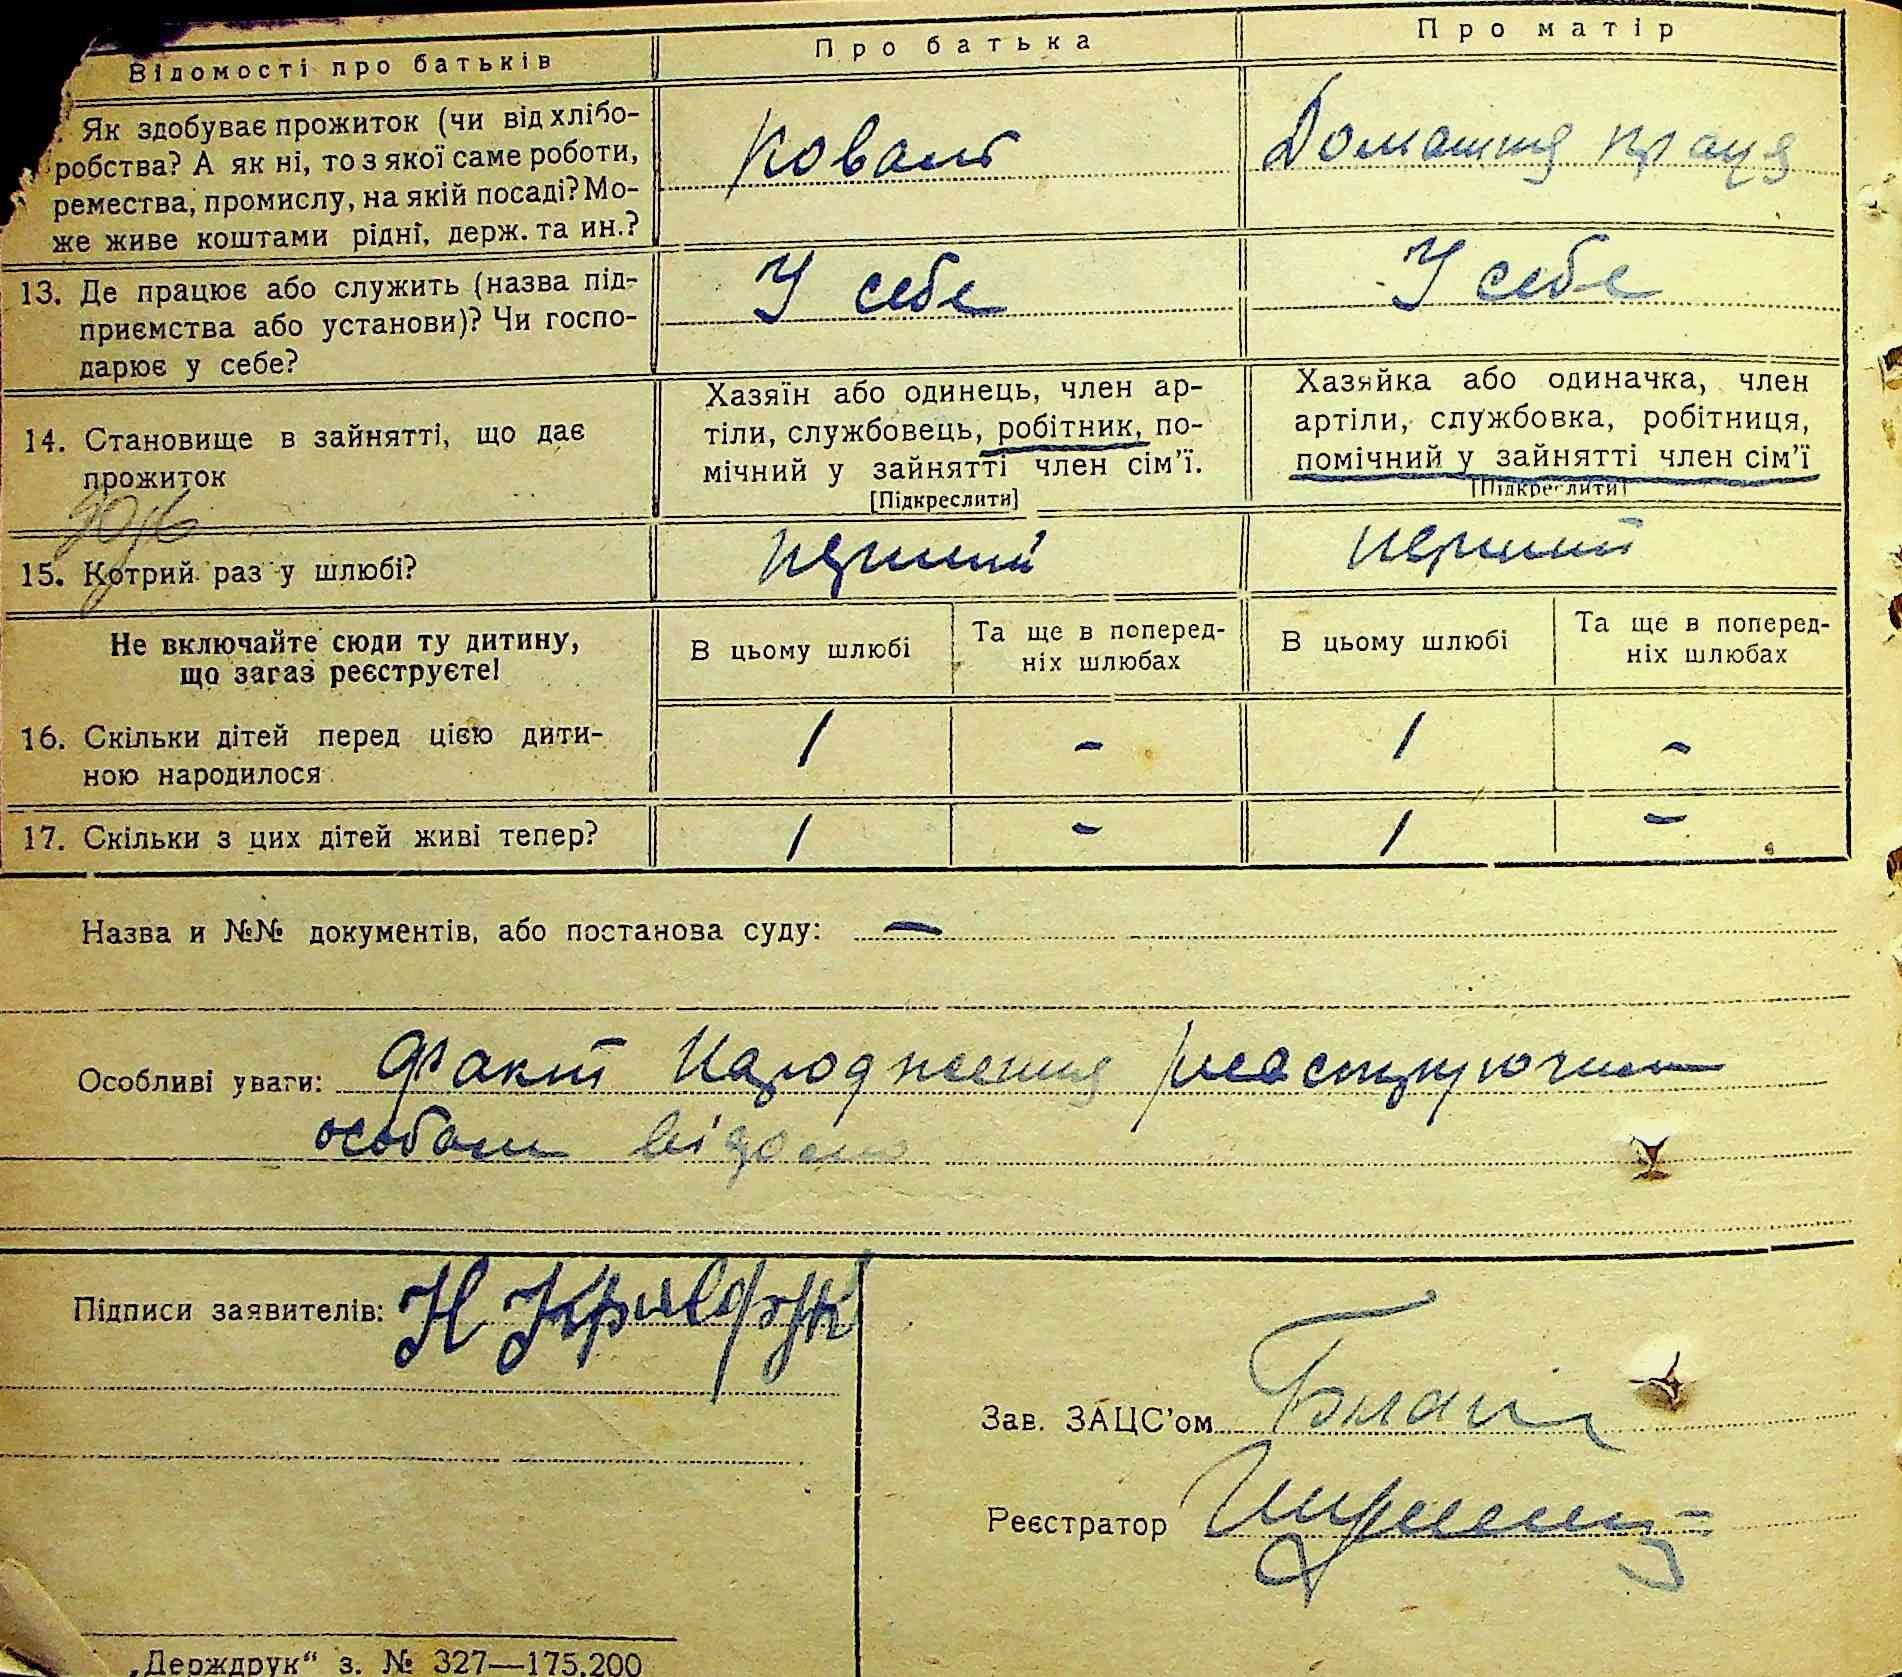 Відомості про батьків
Про батька
Про матір
Як здобуває прожиток (чи від хлібо-
робства? А як ні, то з якої саме роботи,
ремества, промислу, на якій посаді? Мо-
же живе коштами рідні, держ. та ин.?
Коваль
Домашня праця
13. Де працює або служить (назва під-
приємства або установи)? Чи госпо-
дарює у себе?
У себе
У себе
14. Становище в зайнятті, що дає
прожиток
Хазяїн або одинець, член ар-
тіли, службовець, робітник, по-
мічний у зайнятті член сім’ї.
[Підкреслити]
Хазяйка або одиначка, член
артіли, службовка, робітниця,
помічний у зайнятті член сім’ї
[Підкреслити]
15. Котрий раз у шлюбі?
перший
перший
Не включайте сюди ту дитину,
що загаз реєструєте!
В цьому шлюбі
Та ще в поперед-
ніх шлюбах
В цьому шлюбі
Та ще в поперед-
ніх шлюбах
16. Скільки дітей перед цією дити-
ною народилося
1 - 1 -
17. Скільки з цих дітей живі тепер?
1 - 1 -
Назва и №№ документів, або постанова суду: —
Особливі уваги: Факт народження
особам відомо
Підписи заявителів: Н
Зав. ЗАЦС’ом
Реєстратор
„Держдрук“ з. № 327—175.200